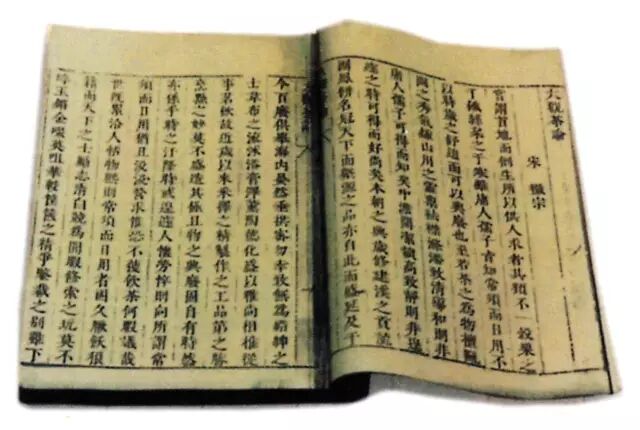 大觀茶論
宋 徽宗
嘗謂首地而倒生所以供人求者其類不一穀粟之
于飢絲枲之于寒雖庸人孺子皆知常須而日用不
以時歲之舒迫而可以興廢也至若茶之為物擅甌
閩之秀氣鍾山川之靈禀袪襟滌滯致清導和則非
庸人孺子可得而知矣冲澹閒潔韻高致則非
遑之時可得而好尚矣本朝之興歲修建溪之貢龍
團鳳餅名冠天下而壑源之品亦自此而盛延及于
今百廢俱舉海内晏然垂拱密勿幸致無為縉紳之
士韋布之流沐浴膏澤薰陶德化盛以雅尚相推從
事茗飲故近歲以來采擇之精製作之工品第之勝
烹點之妙莫不盛造其極且物之興廢固自有時然
亦係乎時之汙隆時或遑遽人懷勞悴則向所謂常
須而日用猶且汲汲營求惟恐不獲飲茶何暇議哉
世既累洽人恬物熙則常須而日用者固久厭飫狼
籍而天下之士勵志清白競為閒暇修索之玩莫不
碎玉鏘金啜英咀華較筐篋之精爭鑒裁之別雖下